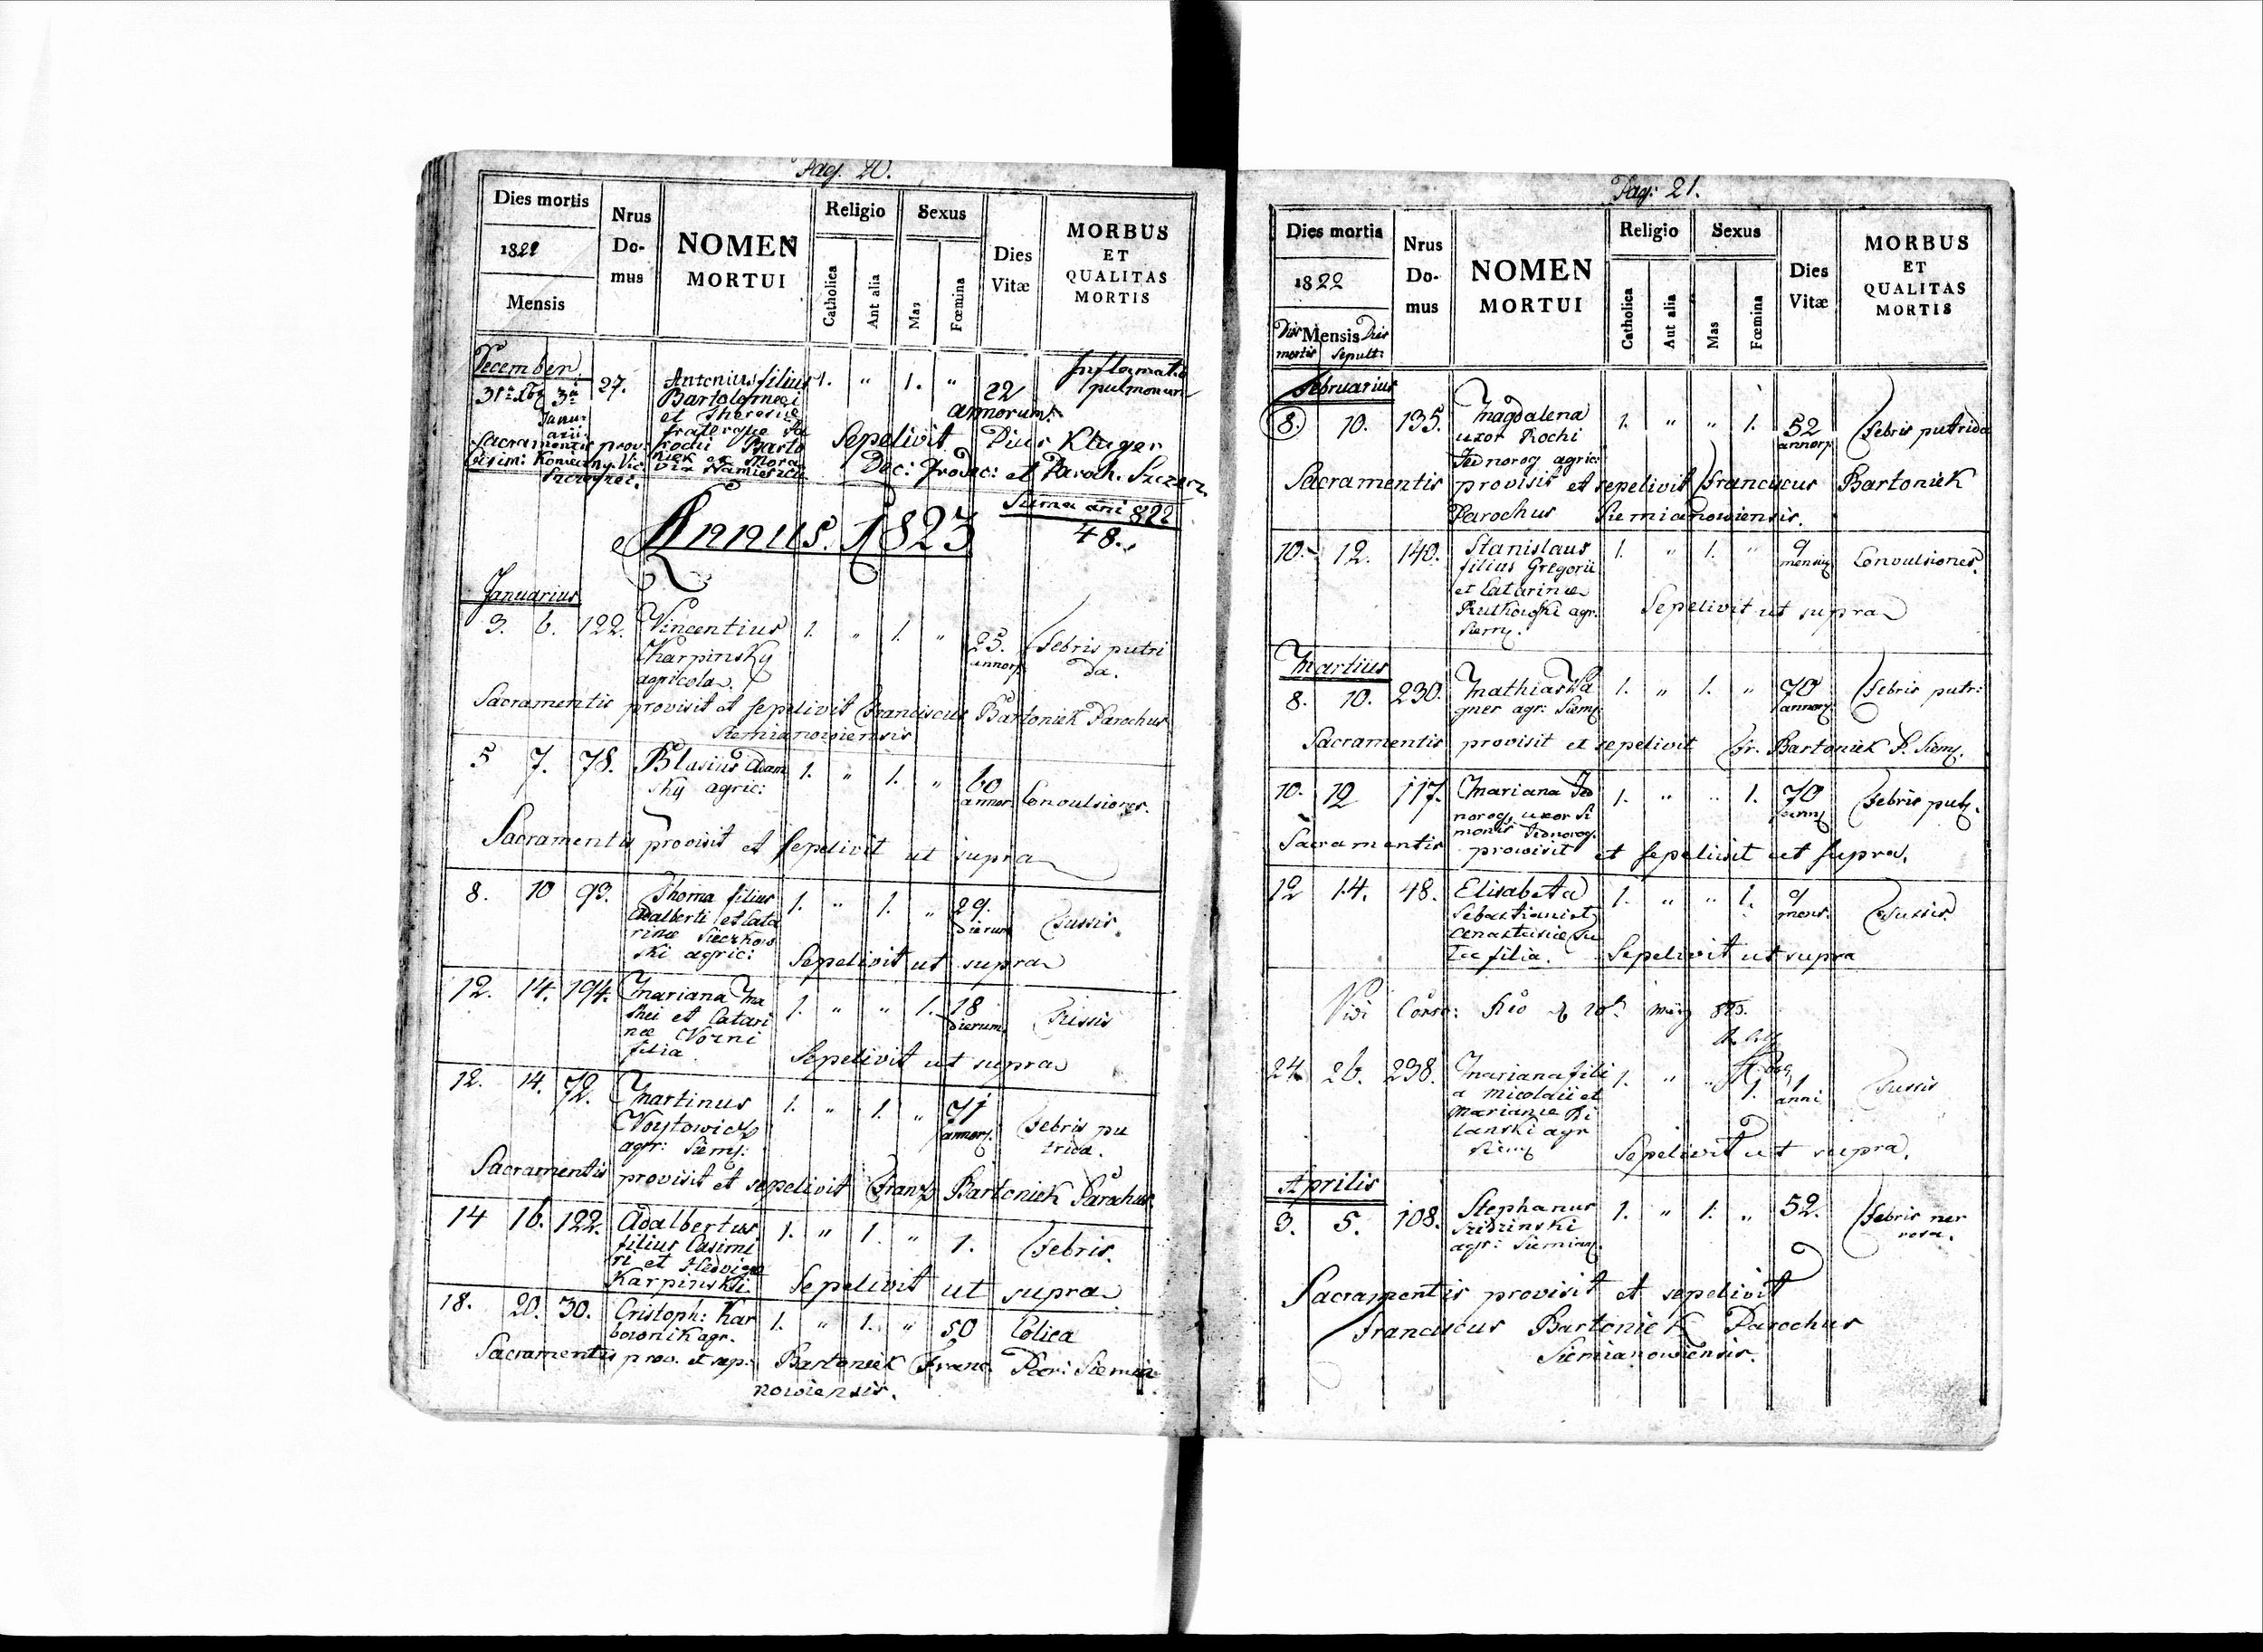 Pag. 20.
Dies mortis
1822
Mensis
Nrus
Do-
mus
NOMEN
MORTUI
Religio
Catholica
Aut alia
Sexus
Mas
Fœmina
Dies
Vitæ
MORBUS
ET
QUALITAS
MORTIS
December
31 3 27. Antonius filius 1. " 1. " 22 Inflamatio
Janu- Bartolomaei annorum pulmonum
arii et Theresiae
fraterque
Sacramentis prov: Sepelivit Pius Kluger
Dec: Prodec: et Paroch.
Suma ani 822
48.
Annus. 1823
Januarius
3. 6. 122. Vincentius 1. " 1. " 25. Febris putri
Karpinsky annor da.
agricola.
Sacramentis provisit et sepelivit Franciscus Bartoniek Parochus
Siemianowiensis
5 7. 78. Blasius Adam 1. " 1. " 60 Convulsiones.
sky agric: annor
Sacramentis provisit et sepelivit ut supra
8. 10 93. Thoma filius 1. " 1. " 29. Tussis.
Adalberti et Cata dierum
rinæ Sieczkow
ski agric: Sepelivit ut supra
12. 14. 194. Mariana Ma 1. " " 1. 18 Tussis
thei et Catari dierum
næ Worni
filia Sepelivit ut supra
12. 14. 72. Martinus 1. " 1. " 71 Febris pu
Woytowicz annor. trida.
agr: Siem:
Sacramentis provisit et sepelivit Franz Bartoniek Parochus
14 16. 122. Adalbertus 1. " 1. " 1. Febris.
filius Casimi
ri et Hedvigæ
Karpinski. Sepelivit ut supra
18. 20. 30. Cristoph: Kar 1. " 1. " 50 Colica
bownik agr.
Sacramentis prov. et sep: Bartoniek Franc. Par: Siemia
nowiensis.
Pag: 21.
Dies mortis
1822
Mensis
Dies mortis
Dies sepult:
Nrus
Do-
mus
NOMEN
MORTUI
Religio
Catholica
Aut alia
Sexus
Mas
Fœmina
Dies
Vitæ
MORBUS
ET
QUALITAS
MORTIS
Februarius
8. 10. 135. Magdalena 1. " " 1. 52 Febris putrida
uxor Rochi annor
Jednorog agric:
Sacramentis provisit et sepelivit Franciscus Bartoniek
Parochus Siemianowiensis.
10. 12. 140. Stanislaus 1. " 1. " 9 Convulsiones.
filius Gregorii mensiu
et Catarinæ
Rutkowski agr. Sepelivit ut supra
Siem.
Martius
8. 10. 230. Mathias Wa 1. " 1. " 70 Febris putr:
gner agr: Siem annor
Sacramentis provisit et sepelivit Fr. Bartoniek P. Siem.
10. 12 117. Mariana Jed 1. " " 1. 70 Febris put.
norog, uxor Si
monis Jednorog.
Sacramentis provisit et sepelivit ut supra.
12 14. 48. Elisabeta 1. " " 1. 9 Tussis
Sebastiani et mens.
Anastasiæ
filia. Sepelivit ut supra
Vidi
24. 26. 238. Mariana fili 1. " " 1. 1 Tussis
a Nicolaii et anni
Marianæ
lanski agr
Siem Sepelivit ut supra.
Aprilis
3. 5. 108. Stephanus 1. " 1. " 52. Febris ner
Szidzinski vosa.
agr: Siemian.
Sacramentis provisit et sepelivit
Franciscus Bartoniek Parochus
Siemianowiensis.